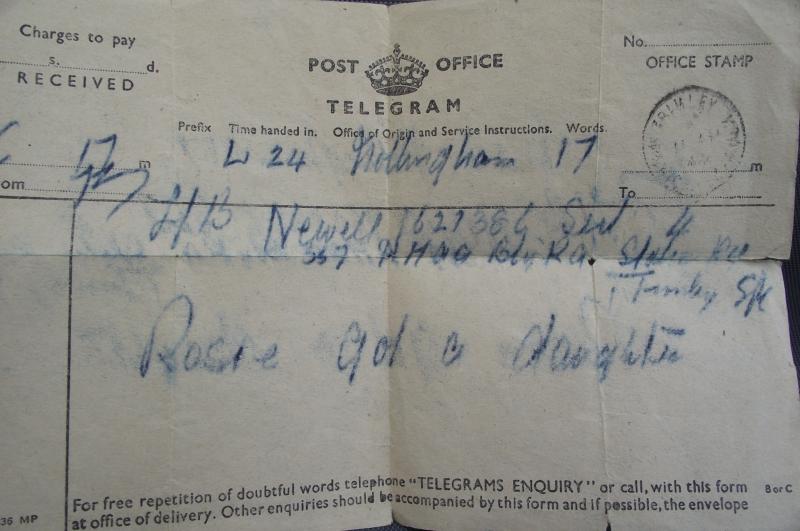 Charges to pay
s. d.
RECEIVED
POST OFFICE
TELEGRAM
Prefix Time handed in. Office of Origin and Service Instructions. Words.
No.
OFFICE STAMP
17 m
L 24 Nottingham 17
m
To
L/B Newell 1627386 Sect 4
357 HAA Bty RA
Rosie got a daughter
For free repetition of doubtful words telephone "TELEGRAMS ENQUIRY" or call, with this form
at office of delivery. Other enquiries should be accompanied by this form and if possible, the envelope
B or C
36 MP